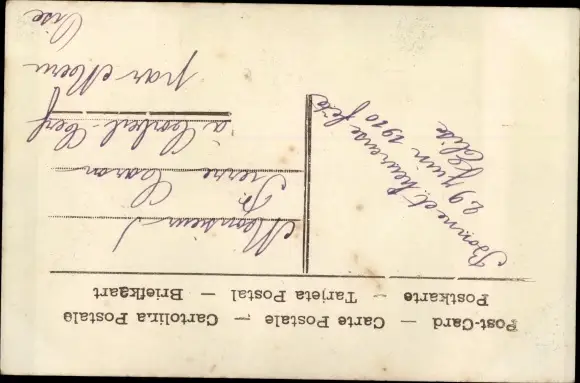 Post-Card — Carte Postale — Cartolina Postale
Postkarte — Tarjeta Postal — Briefkaart
Bonne et heureuse fête
29 Juin 1910
Elise
Monsieur
Pierre Caron
à Corbeil-Cerf
par Meru
Oise